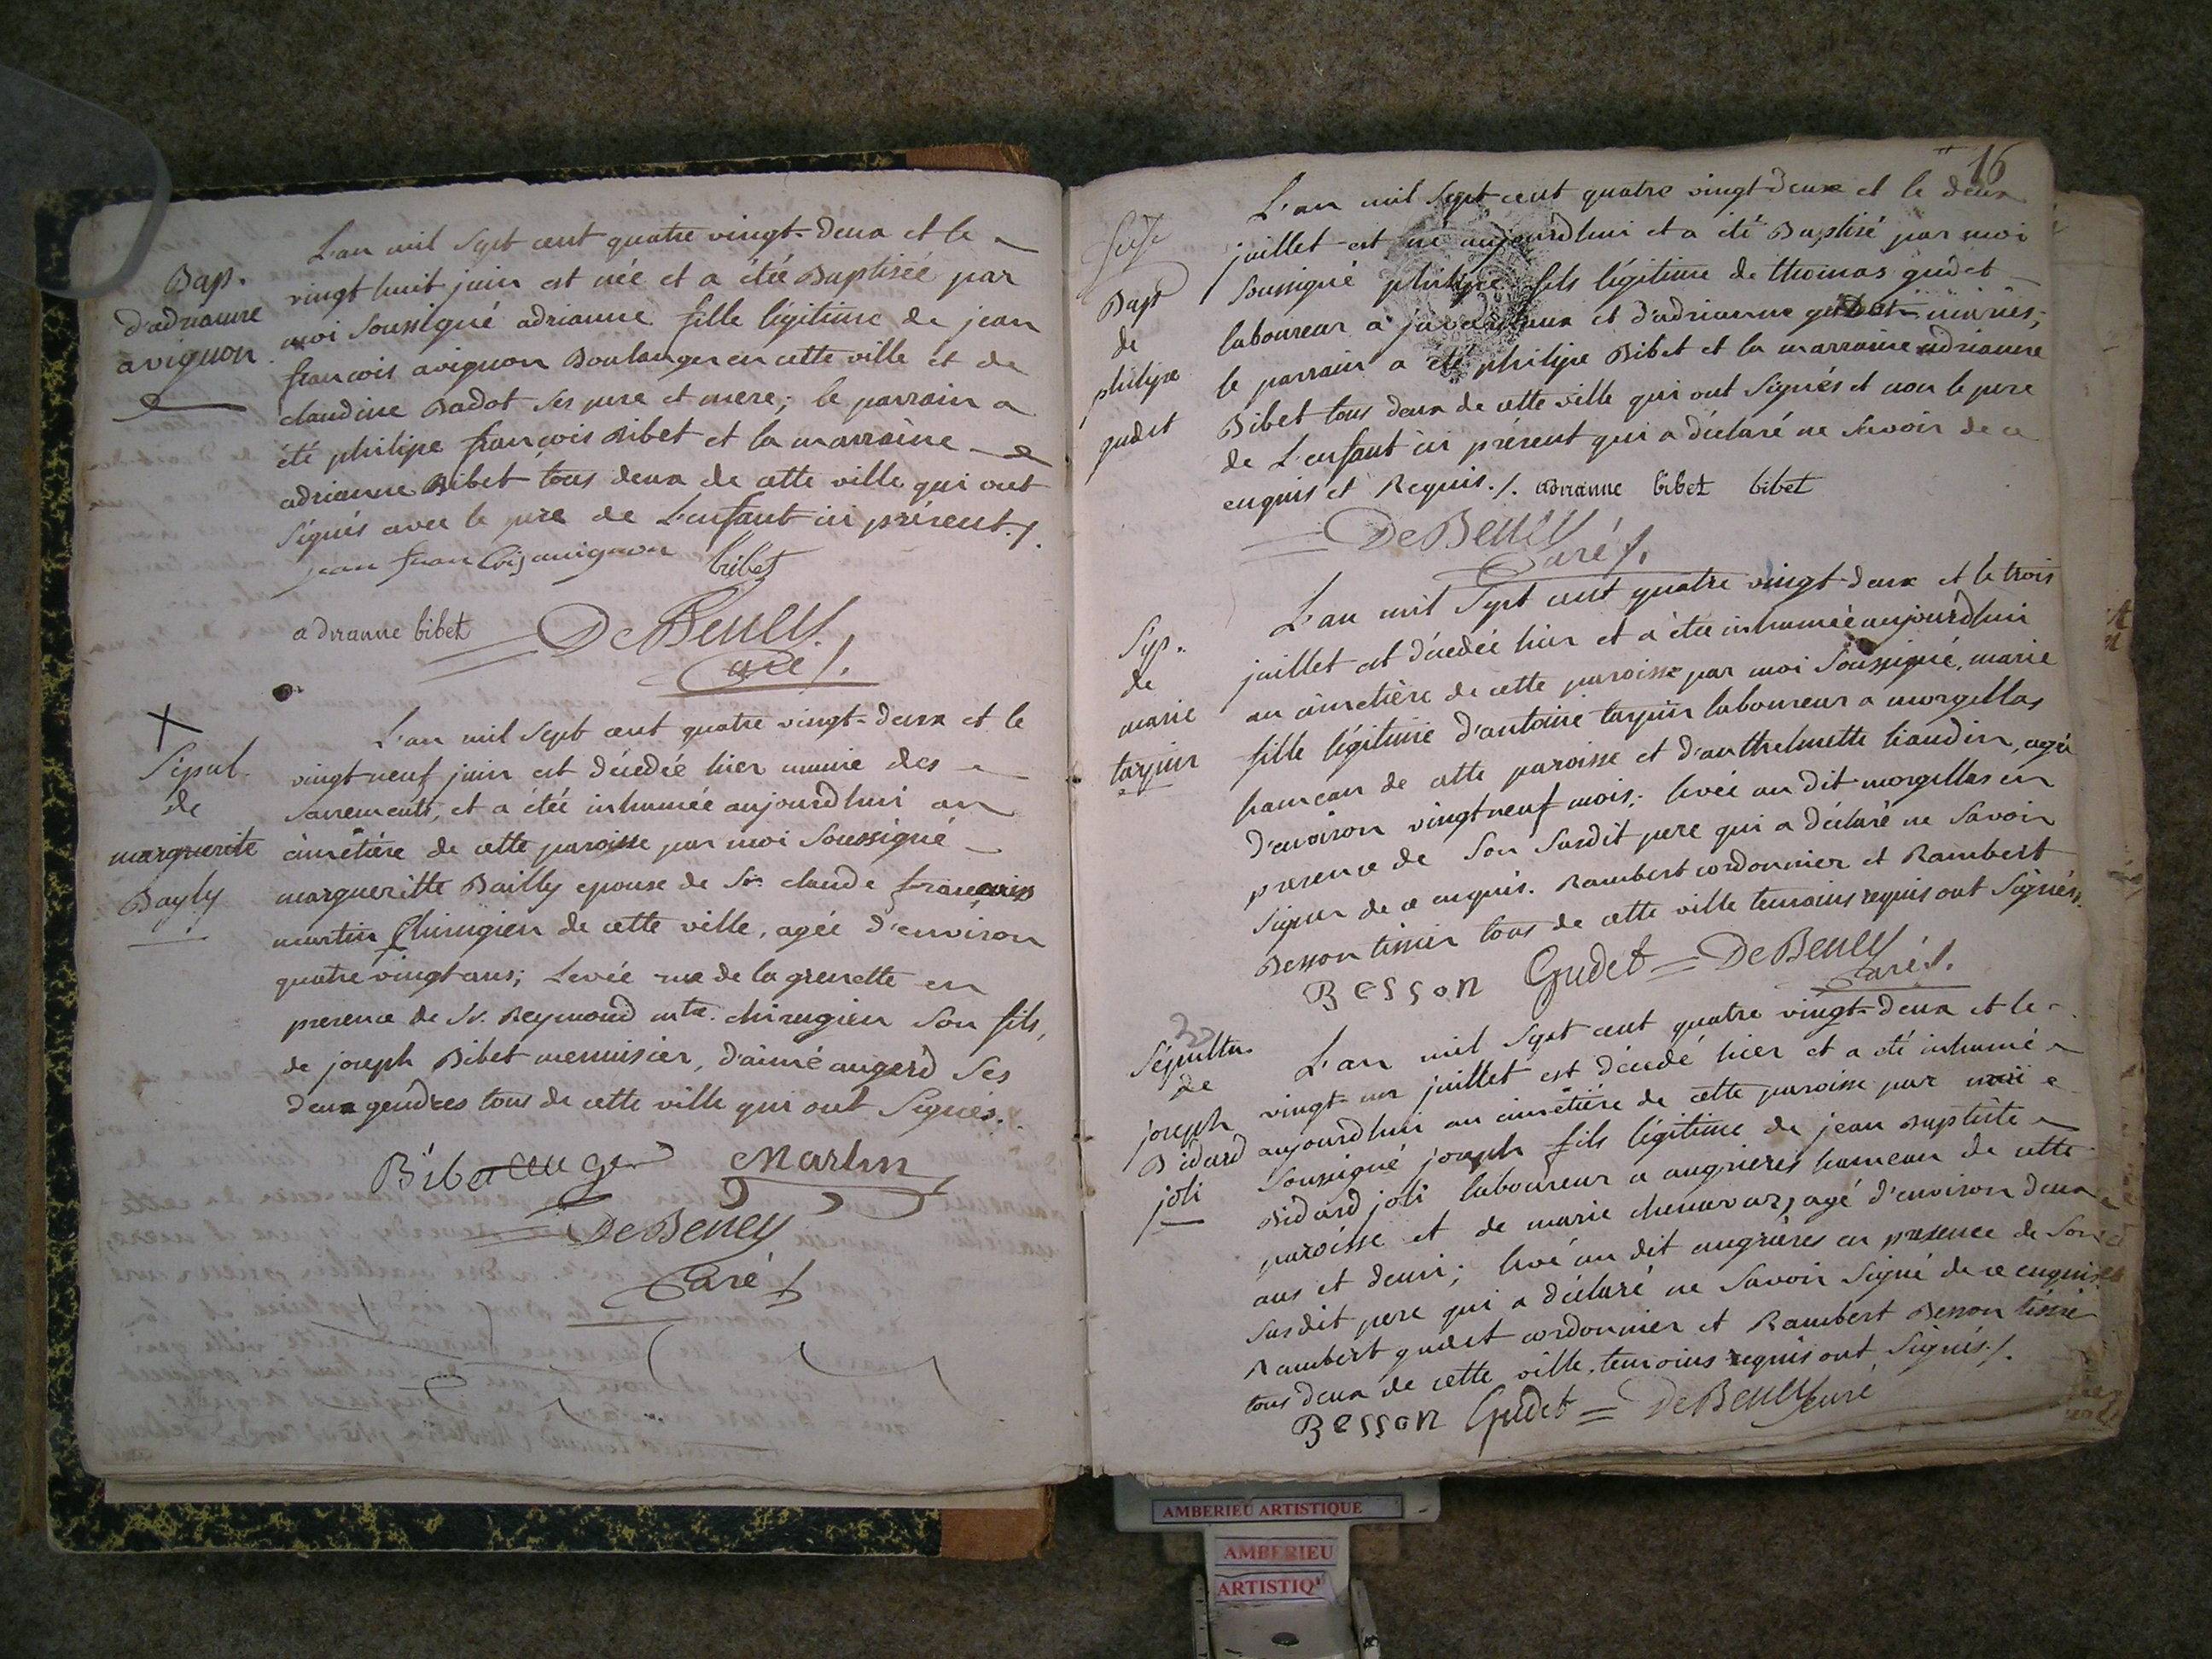 Bap.
d'adrianne
avignon
L'an mil sept cent quatre vingt-deux et le
vingt huit juin est née et a étée Baptisée par
moi soussigné adrianne fille légitime de jean
françois avignon Boulanger en cette ville et de
claudine Badot ses pere et mere; le parrain a
été philipe françois Bibet et la marraine
adrianne Bibet tous deux de cette ville qui ont
signés avec le pere de L'enfant ici présent ./.
jean francois avignon bibet
adrianne bibet = DeBeney
Curé ./.
Sépul.
de
marguerite
Bayly
L'an mil sept cent quatre vingt-deux et le
vingt neuf juin est décédée hier munie des
sacrements, et a étée inhumée aujourdhui au
cimetière de cette paroisse par moi soussigné
margueritte Bailly epouse de Sr. claude françois
martin Chirugien de cette ville, agée d'environ
quatre vingt ans; Levée rue de la grenette en
presence de Sr. Reymond mtre. chirugien son fils,
de joseph Bibet menuisier, d'aimé augerd ses
deux gendres tous de cette ville qui ont signés.
Bibet auger Martin
= DeBeney
Curé
16
L'an mil sept cent quatre vingt-deux et le deux
juillet est né aujourdhui et a été Baptisé par moi
soussigné philipe fils légitime de thomas gudet
laboureur a et d'adrianne mariés;
le parrain a été philipe Bibet et la marraine adrianne
Bibet tous deux de cette ville qui ont signés et non le pere
de L'enfant ici présent qui a déclaré ne savoir de ce
enquis et Requis ./. adrianne bibet bibet
Bapt
de
philipe
gudet
= DeBeney
Curé ./.
Sep.
de
marie
tarpin
L'an mil sept cent quatre vingt-deux et le trois
juillet est décédée hier et a étée inhumée aujourdhui
au cimetière de cette paroisse par moi soussigné, marie
fille légitime d'antoine tarpin laboureur a morgellas
hameau de cette paroisse et d'anthelmette liaudin, agée
d'environ vingt neuf mois; levée au dit morgellas en
presence de son susdit pere qui a déclaré ne savoir
signer de ce enquis. Rambert cordonnier et Rambert
Besson tissier tous de cette ville temoins requis ont signés.
Besson Gudet = DeBeney
Curé ./.
Sépultu.
de
joseph
Bidard
joli
L'an mil sept cent quatre vingt-deux et le
vingt un juillet est décedé hier et a été inhumé
aujourdhui au cimetière de cette paroisse par moi
soussigné joseph fils légitime de jean Baptiste
Bidard joli laboureur a augrieres hameau de cette
paroisse et de marie chenavaz, agé d'environ deux
ans et demi; levé au dit augrières en presence de son
susdit pere qui a déclaré ne savoir signé de ce enquis
Rambert gudet cordonnier et Rambert Besson tissier
tous deux de cette ville, temoins requis ont signés ./.
Besson Gudet = DeBeney curé
AMBERIEU ARTISTIQUE
AMBERIEU
ARTISTIQ